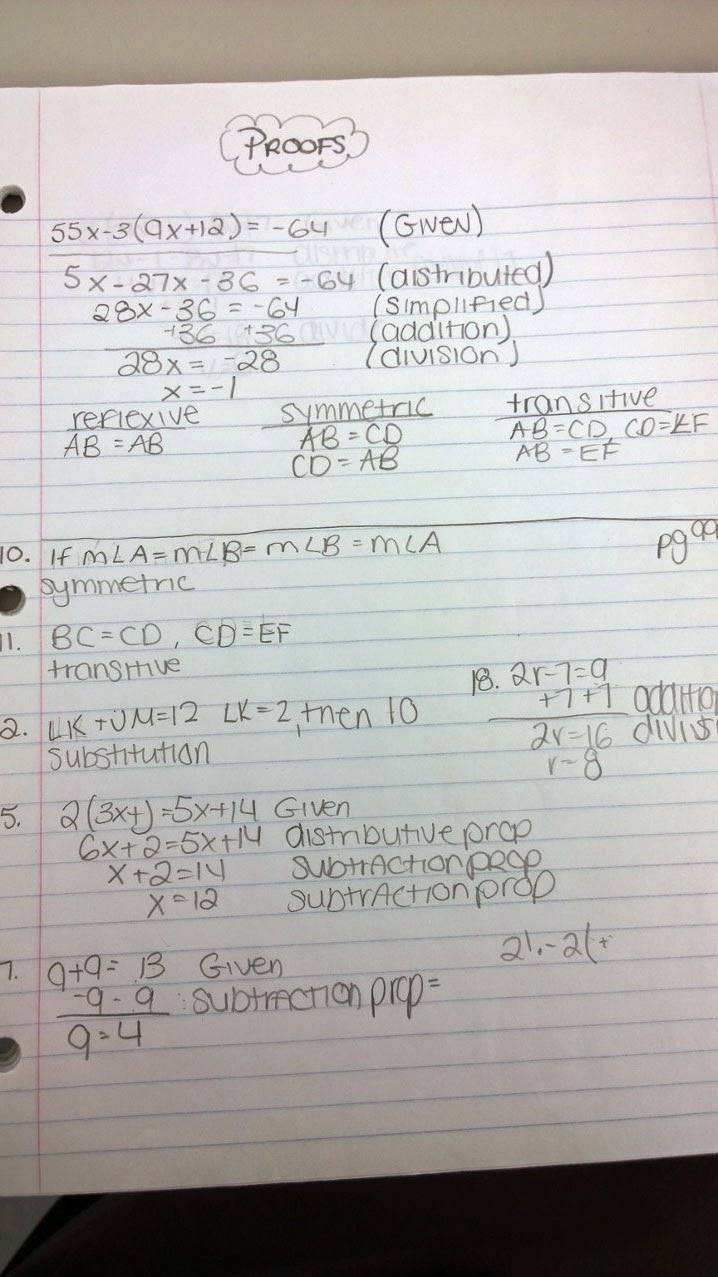 PROOFS
55x-3(9x+12)= -64 (Given)
5x-27x-36 =-64 (distributed)
28x-36 = -64 (simplified)
+36 +36 (addition)
28x = -28 (division)
x=-1
reflexive symmetric transitive
AB = AB AB = CD AB=CD, CD=EF
CD = AB AB = EF
10. If m∠A=m∠B= m∠B = m∠A pg 99
symmetric
11. BC=CD, CD=EF
transitive
18. 2r-7=9
+7 +7 addition
2r=16
r=8
2. LK=2, then 10
substitution
5. =5x+14 Given
6x+2=5x+14 distributive prop
x+2=14 subtraction prop
x=12 subtraction prop
7. 9+9= 13 Given
-9 - 9 : subtraction prop=
9=4
21. -2(+